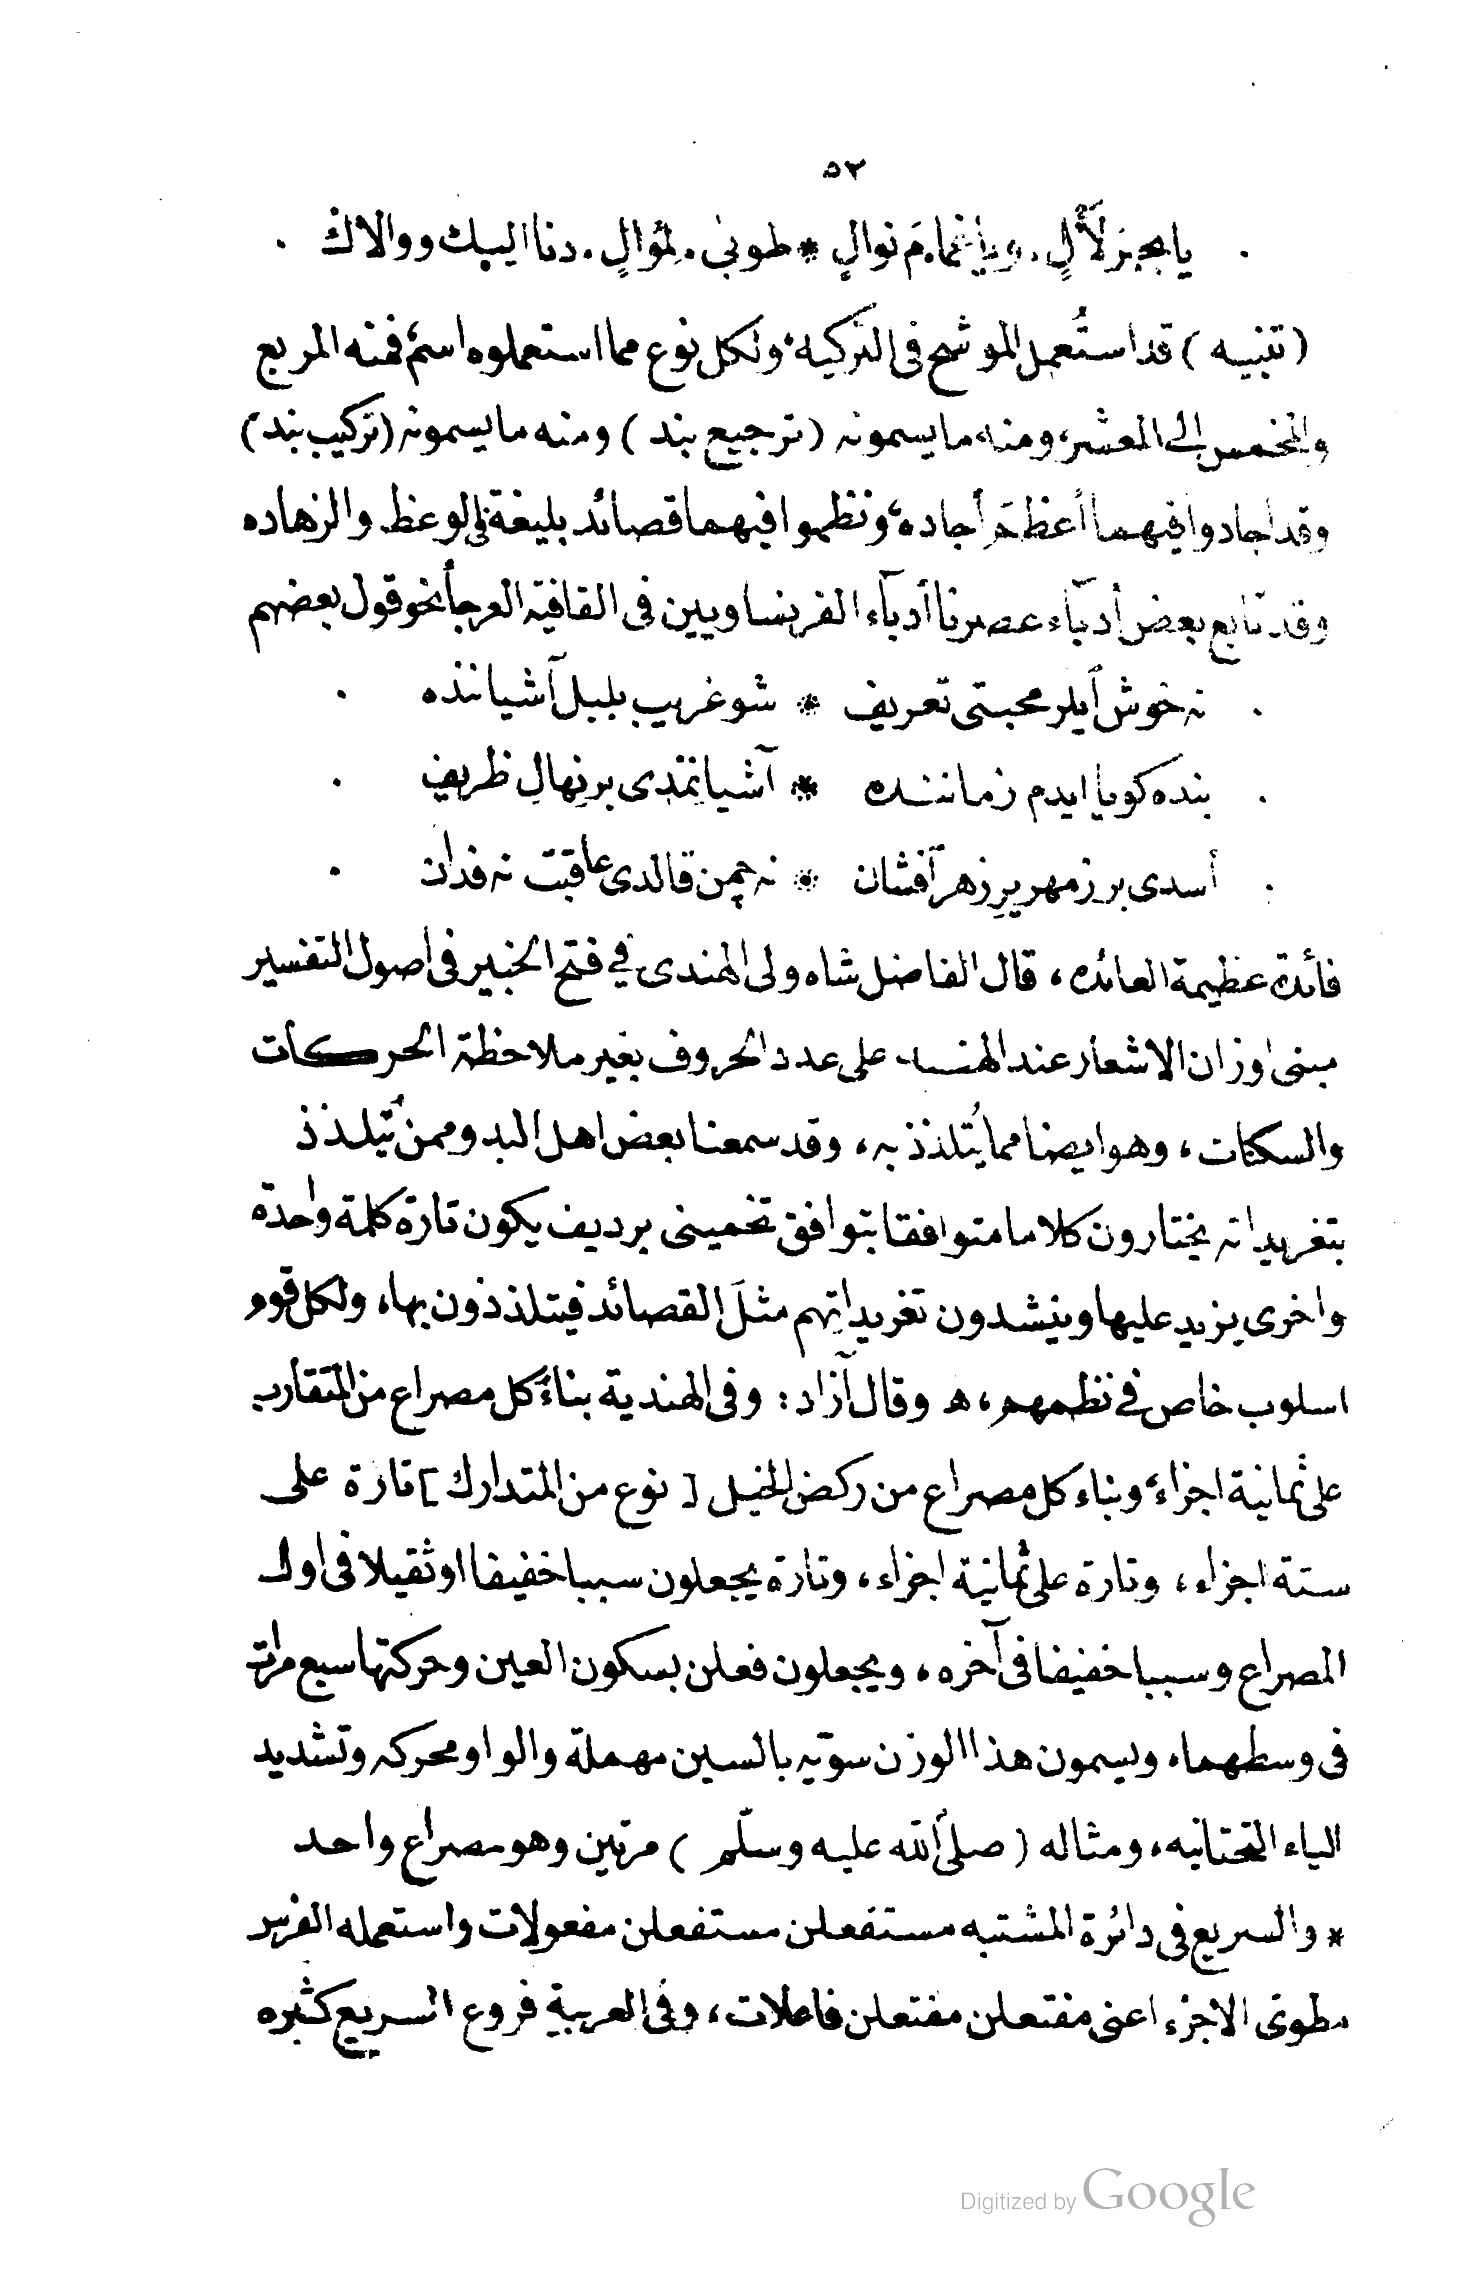 ٥٢
يا بحر لَأْلٍ. ويا غمامَ نوالٍ * طوبى. لمُوالٍ. دنا اليك ووالاك
(تنبيه) قد استُعمل الموشح فى التركيه، ولكل نوع مما استعملوه اسم، فمنه المربع
والمخمس الى المعشر، ومنه ما يسمونه (ترجيع بند) ومنه ما يسمونه (تركيب بند)
وقد اجادوا فيهما أعظمَ أجاده، ونظموا فيهما قصائد بليغة فى الوعظ والزهاده
وقد تابع بعض أدبآء عصرنا أدبآء الفرنساويين فى القافية العرجأ نحو قول بعضهم
. نه خوش آيلر محبتى تعريف * شو غريب بلبل آشياننده .
. بنده كويا ايدم زماننده * آشيانمدى بر نهالِ ظريف .
. أسدى بر زمهريرِ زهر آفشان * نه چمن قالدى عاقبت نه فدان .
فائدة عظيمة العائده، قال الفاضل شاه ولى الهندى في فتح الخبير فى اصول التفسير
مبنى اوزان الاشعار عند الهند على عدد الحروف بغير ملاحظة الحركات
والسكنات، وهو ايضا مما يُتلذذ به، وقد سمعنا بعض اهل البدو ممن يُتلذذ
بتغريداته يختارون كلاما متوافقا بتوافق تخمينى برديف يكون تارة كلمة واحدة
واخرى يزيد عليها وينشدون تغريداتِهم مثلَ القصائد فيتلذذون بها، ولكل قوم
اسلوب خاص في نظمهم، ﻫ وقال آزاد: وفى الهندية بناءُ كل مصراع من المتقارب
على ثمانية اجزاء، وبناء كل مصراع من ركض الخيل [نوع من المتدارك] تارة على
ستة اجزاء، وتارة على ثمانية اجزاء، وتارة يجعلون سببا خفيفا او ثقيلا فى اول
المصراع وسببا خفيفا فى آخره، ويجعلون فعلن بسكون العين وحركتها سبع مرات
فى وسطهما، ويسمون هذا الوزن سويّه بالسين مهملة والواو محركه وتشديد
الياء التحتانيه، ومثاله (صلى الله عليه وسلّم) مرتين وهو مصراع واحد
* والسريع فى دائرة المشتبه مستفعلن مستفعلن مفعولات واستعمله الفرس
مطوىّ الاجزء اعنى مفتعلن مفتعلن فاعلات، وفى العربية فروع السريع كثيره
Digitized by Google